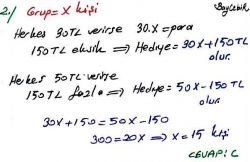 2-) Grup = X kişi
Herkes 30TL verirse 30.X = para
150TL eksik ⇒ Hediye = 30X+150TL
olur.
Herkes 50TL verirse
150TL fazla ⇒ Hediye = 50X-150TL
olur.
30X+150 = 50X-150
300=20X ⇒ X=15 kişi
CEVAP: C